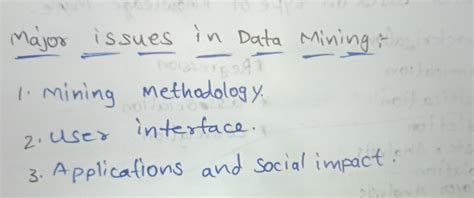 Major issues in Data Mining:-
1. Mining Methodology.
2. User interface.
3. Applications and social impact.